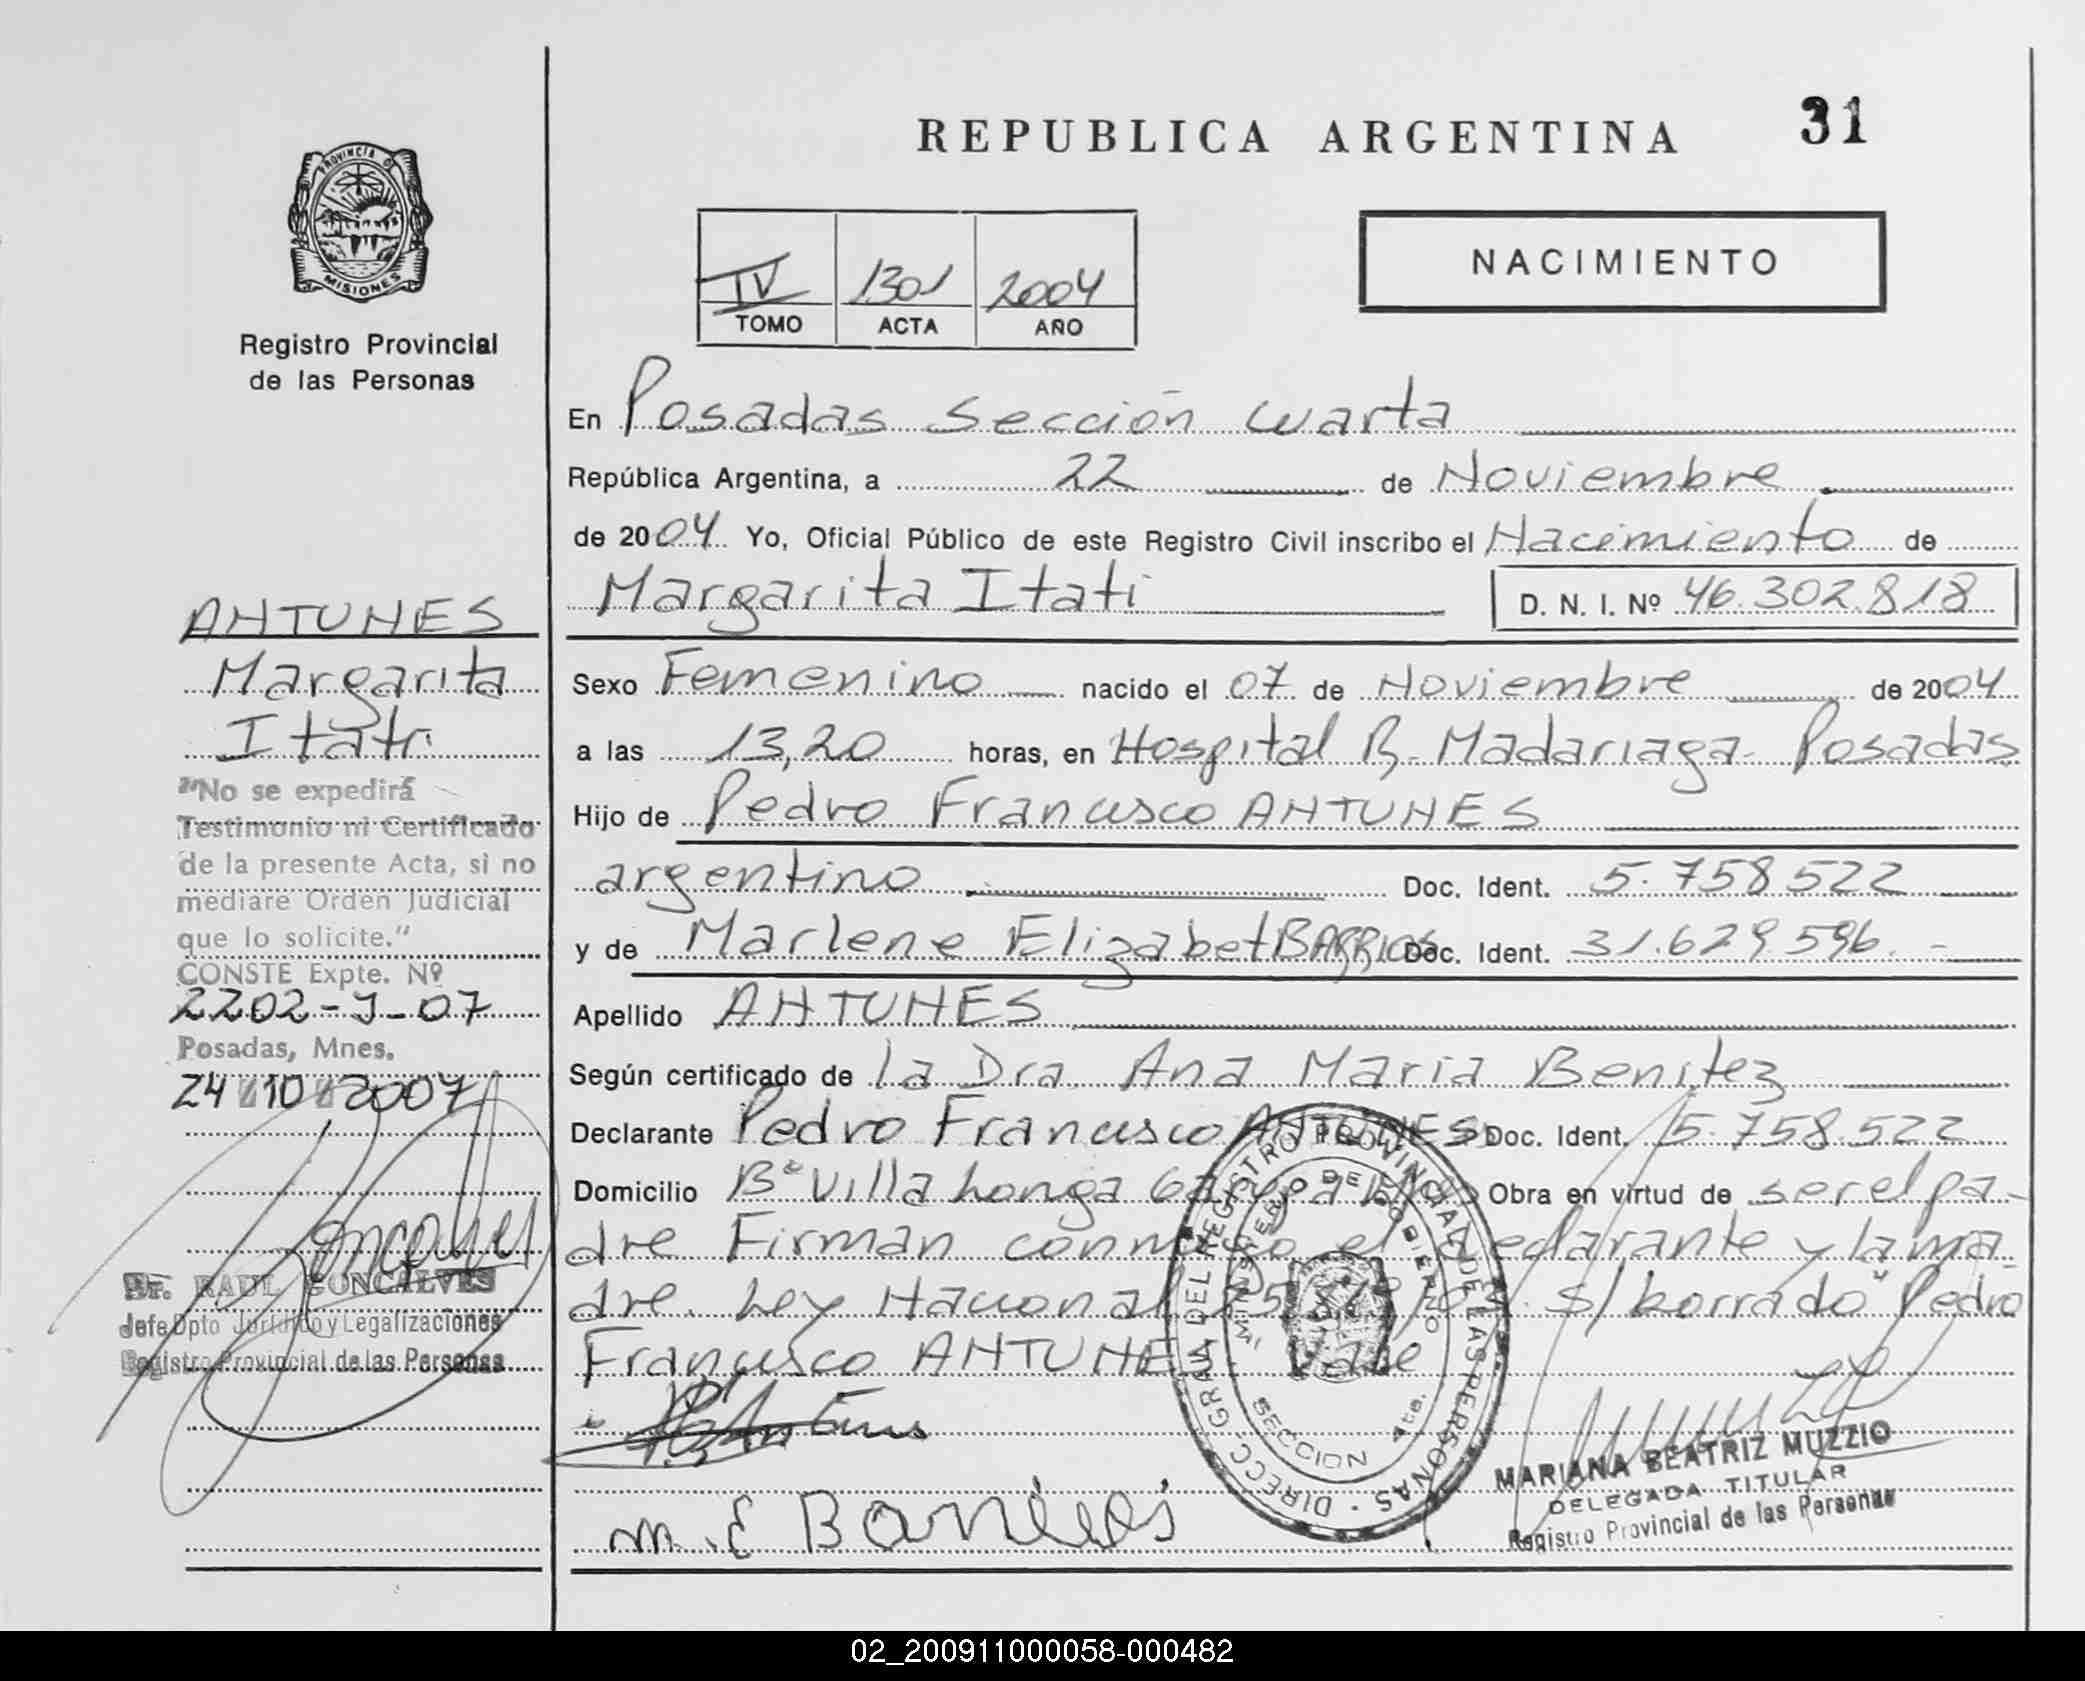 REPUBLICA ARGENTINA 31
PROVINCIA DE
MISIONES
Registro Provincial
de las Personas
IV 1301 2004
TOMO ACTA AÑO
NACIMIENTO
ANTUNES
Margarita
Itati
"No se expedirá
Testimonio ni Certificado
de la presente Acta, si no
mediare Orden Judicial
que lo solicite."
CONSTE Expte. Nº
2202-J-07
Posadas, Mnes.
24 10 2007
Goncalves
Dr. RAUL GONCALVES
Jefe Dpto Jurídico y Legalizaciones
Registro Provincial de las Personas
En Posadas Sección cuarta
República Argentina, a 22 de Noviembre
de 2004 Yo, Oficial Público de este Registro Civil inscribo el Nacimiento de
Margarita Itati D. N. I. Nº 46.302.818
Sexo Femenino nacido el 07 de Noviembre de 2004
a las 13,20 horas, en Hospital R. Madariaga - Posadas
Hijo de Pedro Francisco ANTUNES
argentino Doc. Ident. 5.758522
y de Marlene Elizabet BARRIOS Doc. Ident. 31.629.596.-
Apellido ANTUNES
Según certificado de la Dra. Ana Maria Benitez
Declarante Pedro Francisco ANTUNES Doc. Ident. 5.758.522
Domicilio Bº Villa Longa Garupa Obra en virtud de ser el pa-
dre Firman conmigo el declarante y la ma
dre. Ley Nacional s/borrado "Pedro
Francisco ANTUNES Vale
DIRECC. GRAL DEL REGISTRO PROVINCIAL DE LAS PERSONAS
MINISTERIO DE GOBIERNO
SECCION 4ta.
M. E Barrios
MARIANA BEATRIZ MUZZIO
DELEGADA TITULAR
Registro Provincial de las Personas
02_200911000058-000482